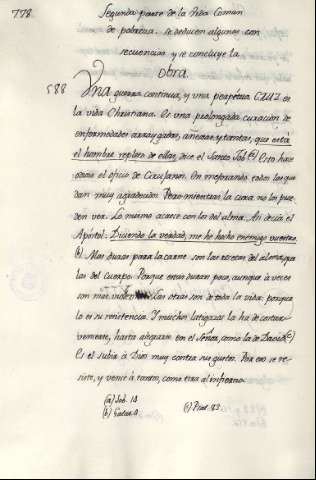 778.
Segunda parte de la Vida Comun
de pobreza. se deducen algunas con
secuencias y se concluye la
obra.
588
Una guerra continua, y una perpetua CRUZ es
la vida Christiana. Es una prolongada curación de
enfermedades arraygadas, añejas, y tantas, que está
el hombre repleto de ellas, dice el Santo Job. (a) Esto hace
odioso el oficio de Cirujano. En mejorando todos los que
dan muy agradecidos. Pero mientras la cura no los pue
den ver. Lo mismo acaece con los del alma. Asi decia el
Apóstol: Diciendo la verdad, me he hecho enemigo vuestro.
(b) Mas duras para la carne son las recetas del alma, que
las del Cuerpo. Porque estas duran poco, aunque a veces
son mas las otras son de toda la vida: porque
lo es su resistencia. Y muchos la ha de
hasta en el Señor, como la de David. (c)
Es el subir à Dios muy contra su gusto. Por eso se re-
siste, y vence à tantos, como cran al infierno.
(a) Job. 14
(b) Galat. 4
(c) Psal. 83.